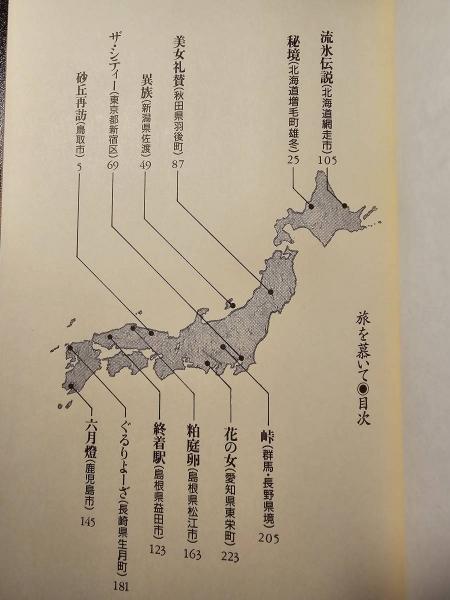 旅を慕いて◉目次
流氷伝説(北海道網走市) 105
秘境(北海道増毛町雄冬) 25
美女礼賛(秋田県羽後町) 87
異族(新潟県佐渡) 49
ザ・シティー(東京都新宿区) 69
砂丘再訪(鳥取市) 5
峠(群馬・長野県境) 205
花の女(愛知県東栄町) 223
粕庭卵(島根県松江市) 163
終着駅(島根県益田市) 123
ぐるりよーざ(長崎県生月町) 181
六月燈(鹿児島市) 145